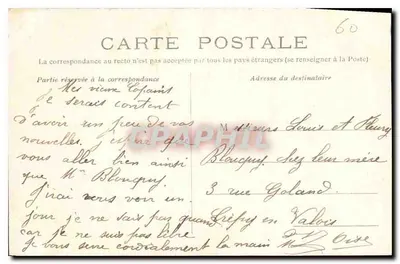 60
CARTE POSTALE
La correspondance au recto n'est pas acceptée par tous les pays étrangers (se renseigner à la Poste)
Partie réservée à la correspondance
Adresse du destinataire
Mes vieux Copains
je serais content
d'avoir un peu de vos
nouvelles, j'espère que
vous aller bien ainsi
que Mme
j'irai vous voir un
jour je ne sais pas quand
car je ne suis pas libre
Je vous serre cordialement la main
Messieurs Louis et Fleury
chez leur mère
3 rue Goland
Crépy en Valois
Oise
CPAPHIL